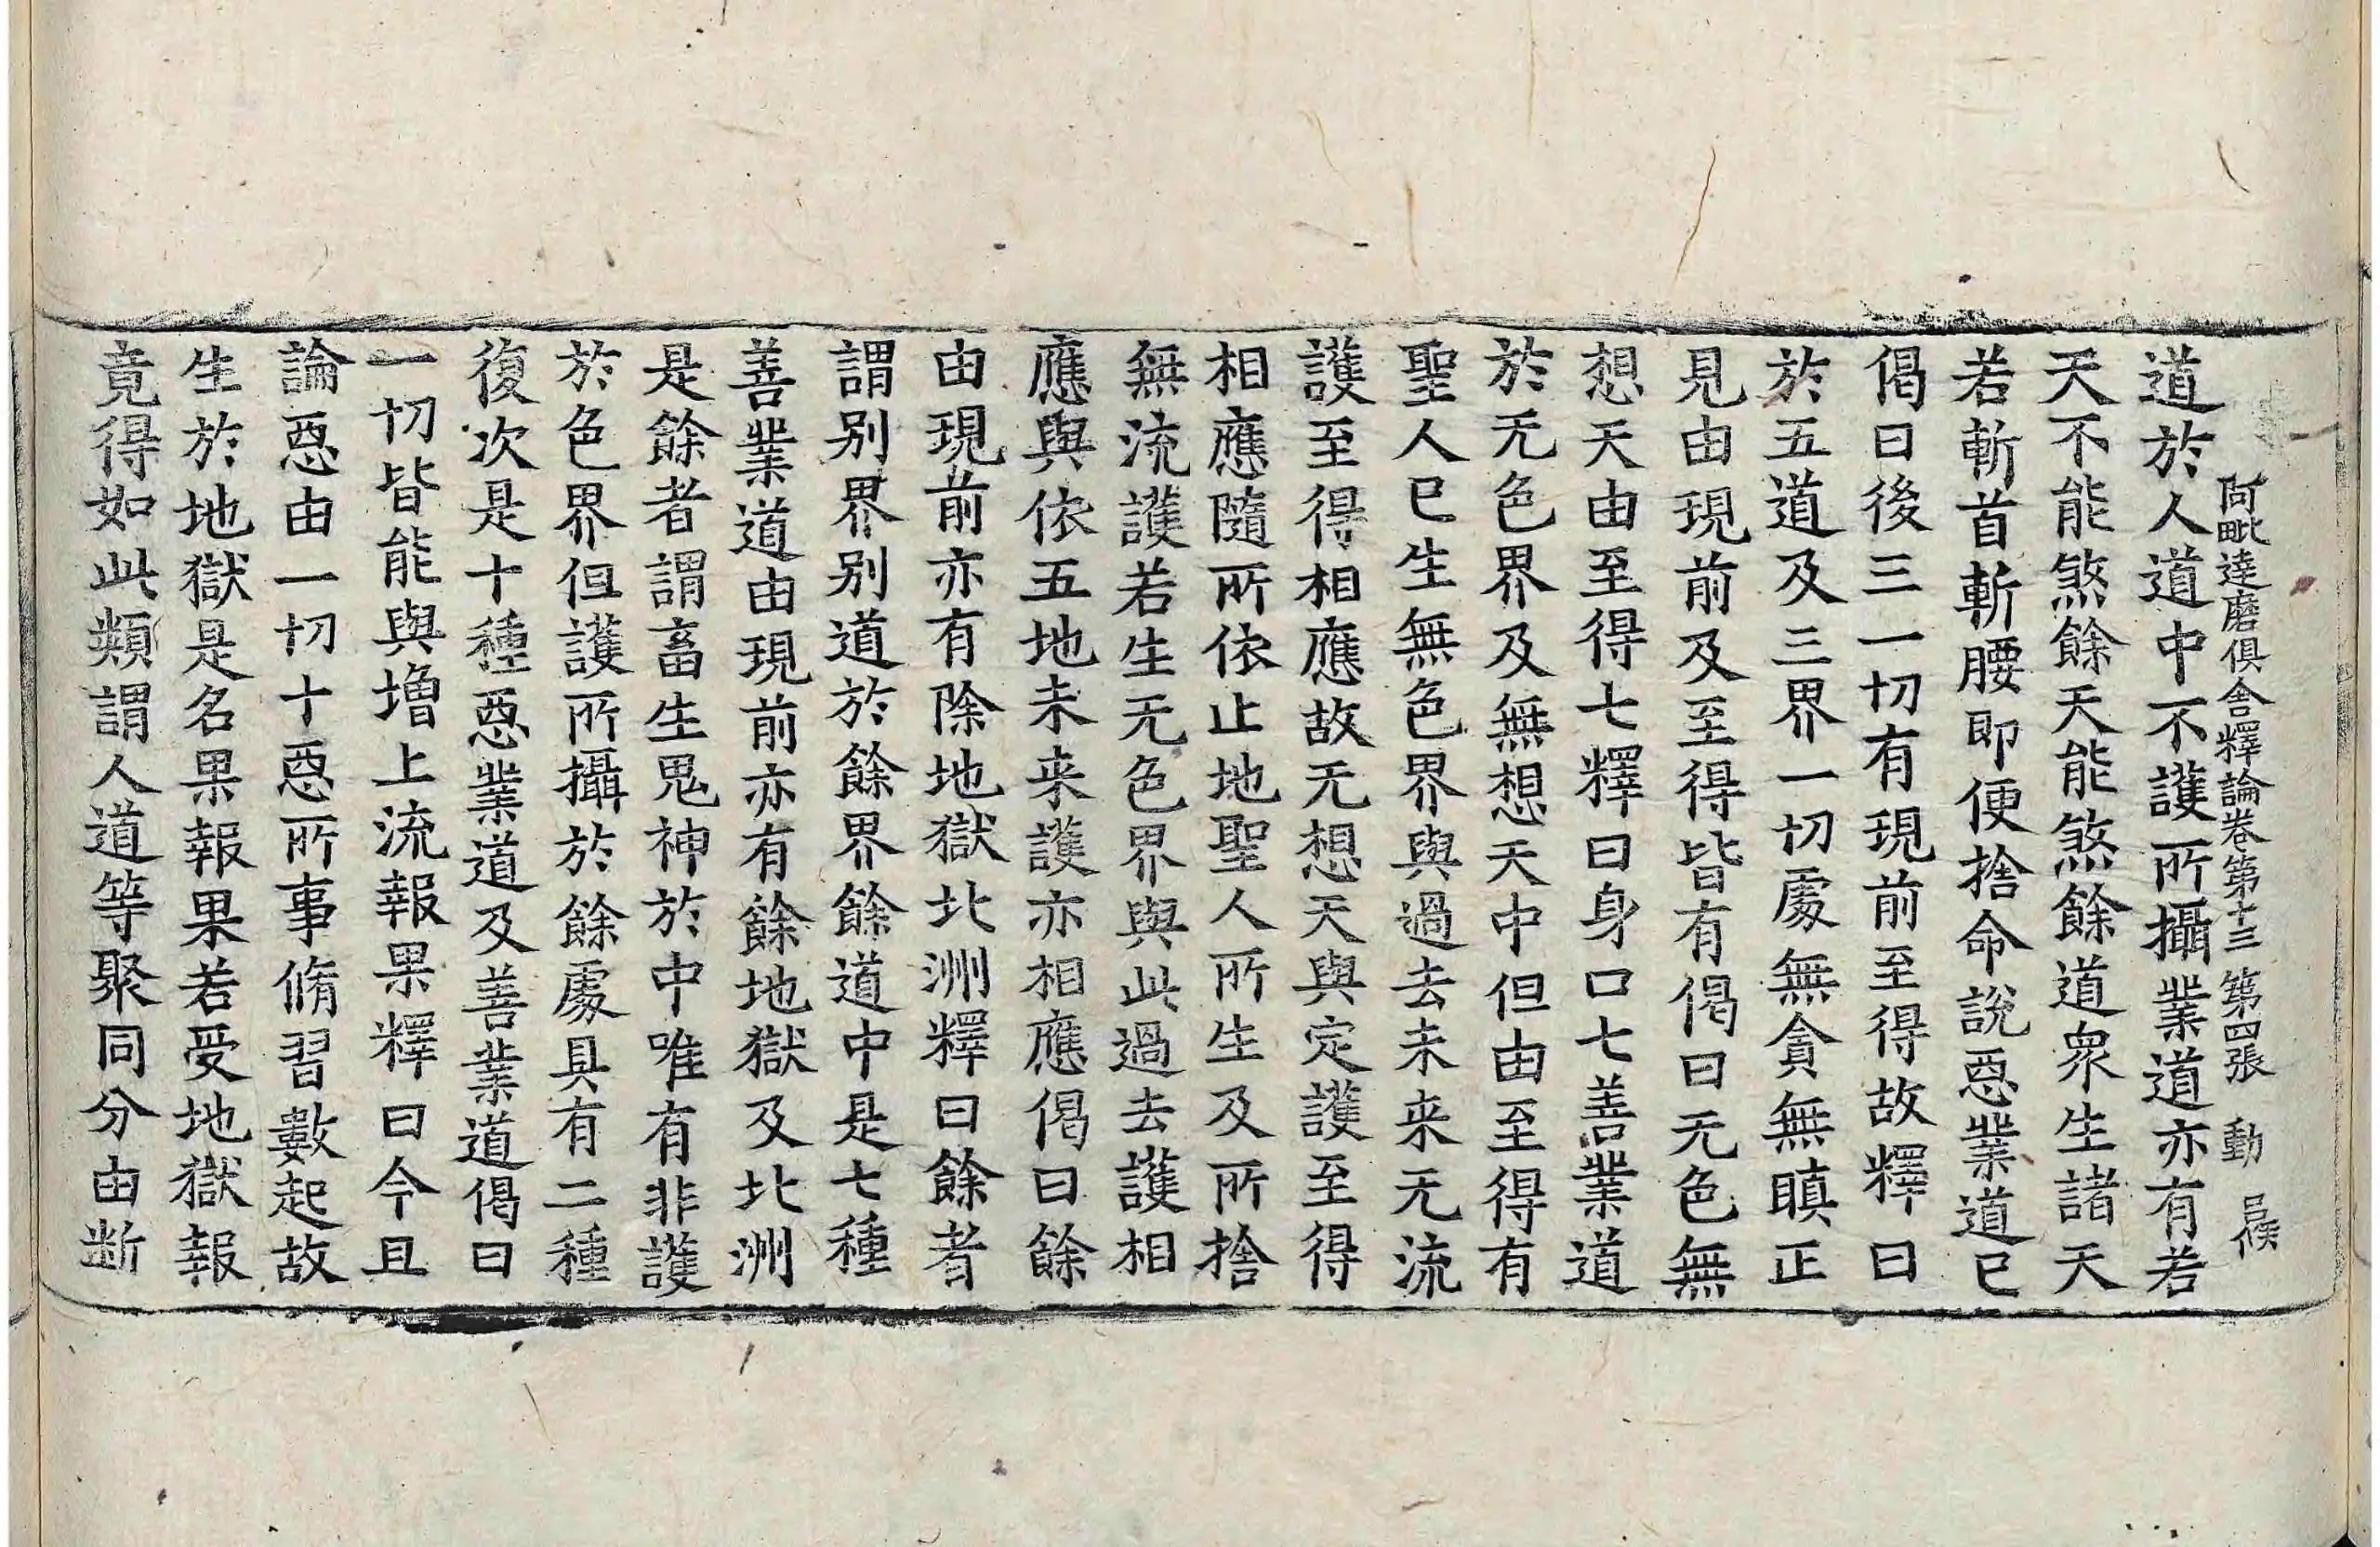 阿毗達磨俱舍釋論卷第十三 第四張 動 呂侯
道於人道中不護所攝業道亦有若
天不能煞餘天能煞餘道衆生諸天
若斬首斬腰即便捨命說惡業道已
偈曰後三一切有現前至得故釋曰
於五道及三界一切處無貪無瞋正
見由現前及至得皆有偈曰无色無
想天由至得七釋曰身口七善業道
於无色界及無想天中但由至得有
聖人已生無色界與過去未来无流
護至得相應故无想天與定護至得
相應隨所依止地聖人所生及所捨
無流護若生无色界與此過去護相
應與依五地未来護亦相應偈曰餘
由現前亦有除地獄北洲釋曰餘者
謂别界别道於餘界餘道中是七種
善業道由現前亦有餘地獄及北洲
是餘者謂畜生鬼神於中唯有非護
於色界但護所攝於餘處具有二種
復次是十種惡業道及善業道偈曰
一切皆能與增上流報果釋曰今且
論惡由一切十惡所事脩習數起故
生於地獄是名果報果若受地獄報
竟得如此類謂人道等聚同分由断